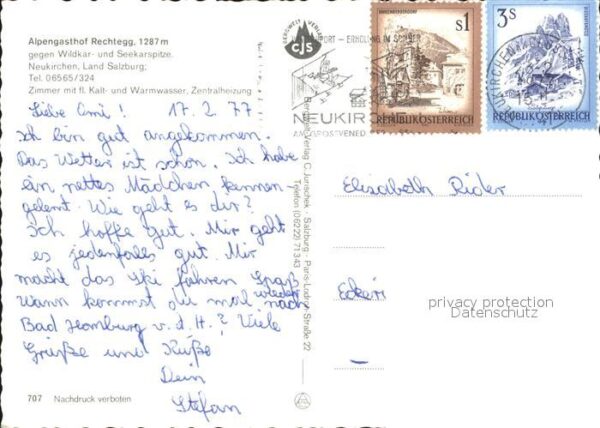 Alpengasthof Rechtegg, 1287 m
gegen Wildkar- und Seekarspitze.
Neukirchen, Land Salzburg;
Tel. 06565/324
Zimmer mit fl. Kalt- und Warmwasser, Zentralheizung
Liebe Omi! 17.2.77
Ich bin gut angekommen.
Das Wetter ist schön. Ich habe
ein nettes Mädchen kennen-
gelernt. Wie geht es dir?
Ich hoffe gut. Mir geht
es jedenfalls gut. Mir
macht das Ski fahren Spaß
Wann kommst du mal wieder nach
Bad Homburg v.d.H.? Viele
Grüße und Küße
Dein
Stefan
707 Nachdruck verboten
BERGWELT VERLAG
CJS
C Jurischek . Salzburg . Paris-Lodron-Straße 22
Telefon (06222) 71343
ERHOLUNG IM SOMMER
NEUKIRCHEN
S1
REPUBLIK ÖSTERREICH
3S
REPUBLIK ÖSTERREICH
Elisabeth Rider
privacy protection
Datenschutz